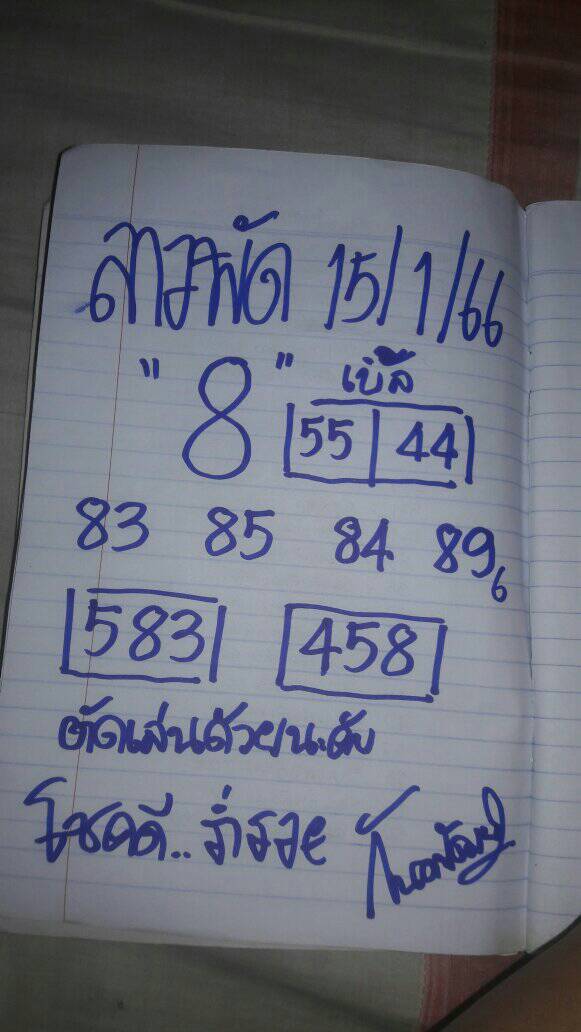 ลาวพัด 15/1/66
"8" เบิ้ล
55 44
83 85 84 89 6
583 458
ตัดเล่นด้วยนะคับ
โชคดี.. ร่ำรวย